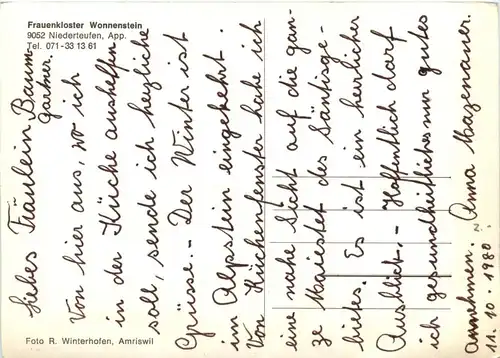 Frauenkloster Wonnenstein
9052 Niederteufen, App.
Tel. 071-33 13 61
Liebes Fräulein Baum-
gartner.
Von hier aus, wo ich
in der Küche aushelfen
soll, sende ich herzliche
Grüsse. - Der Winter ist
im Alpstein eingekehrt.
Von Küchenfenster habe ich
eine nahe Sicht auf die gan-
ze Majestet des Säntisge-
bietes. Es ist ein herrlicher
Ausblick. - Hoffentlich darf
ich gesundheitliches nur gutes
annehmen. Anna Mazenauer.
11.10.1980.
Foto R. Winterhofen, Amriswil